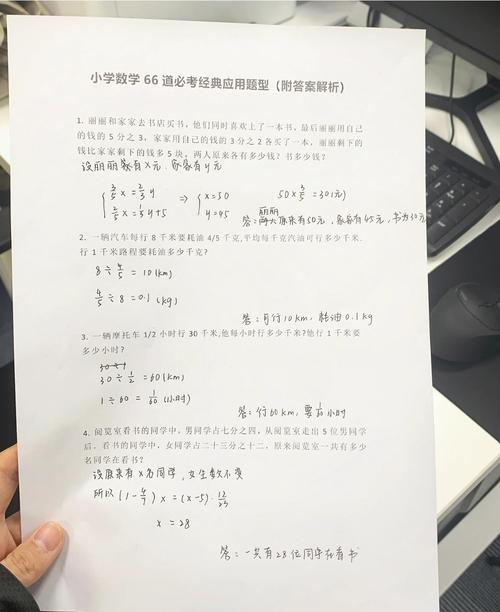 小学数学 66 道必考经典应用题型（附答案解析）
1. 丽丽和家家去书店买书，他们同时喜欢上了一本书，最后丽丽用自己
的钱的 5 分之 3，家家用自己的钱的 3 分之 2 各买了一本，丽丽剩下的
钱比家家剩下的钱多 5 块。两人原来各有多少钱？书多少钱？
设丽丽家有x元，家家有y元
3/5 x = 2/3 y
2/5 x = 1/3 y+5
⇒ x=50
y=45
50×3/5=30(元)
答：丽丽原来有50元，家家有45元，书为30元
2. 一辆汽车每行 8 千米要耗油 4/5 千克,平均每千克汽油可行多少千米.
行 1 千米路程要耗油多少千克?
8÷4/5=10(km)
4/5÷8=0.1(kg)
答：行10km，耗油0.1kg
3. 一辆摩托车 1/2 小时行 30 千米,他每小时行多少千米?他行 1 千米要
多少小时?
30÷1/2=60(km)
1÷60=1/60(小时)
答：行60km，要1/60小时
4. 阅览室看书的同学中，男同学占七分之四，从阅览室走出 5 位男同学
后，看书的同学中，女同学占二十三分之十二，原来阅览室一共有多少
名同学在看书？
设原来有x名同学，女生数不变
所以(1-4/7)x=(x-5)·12/23
x=28
答：一共有28位同学在看书